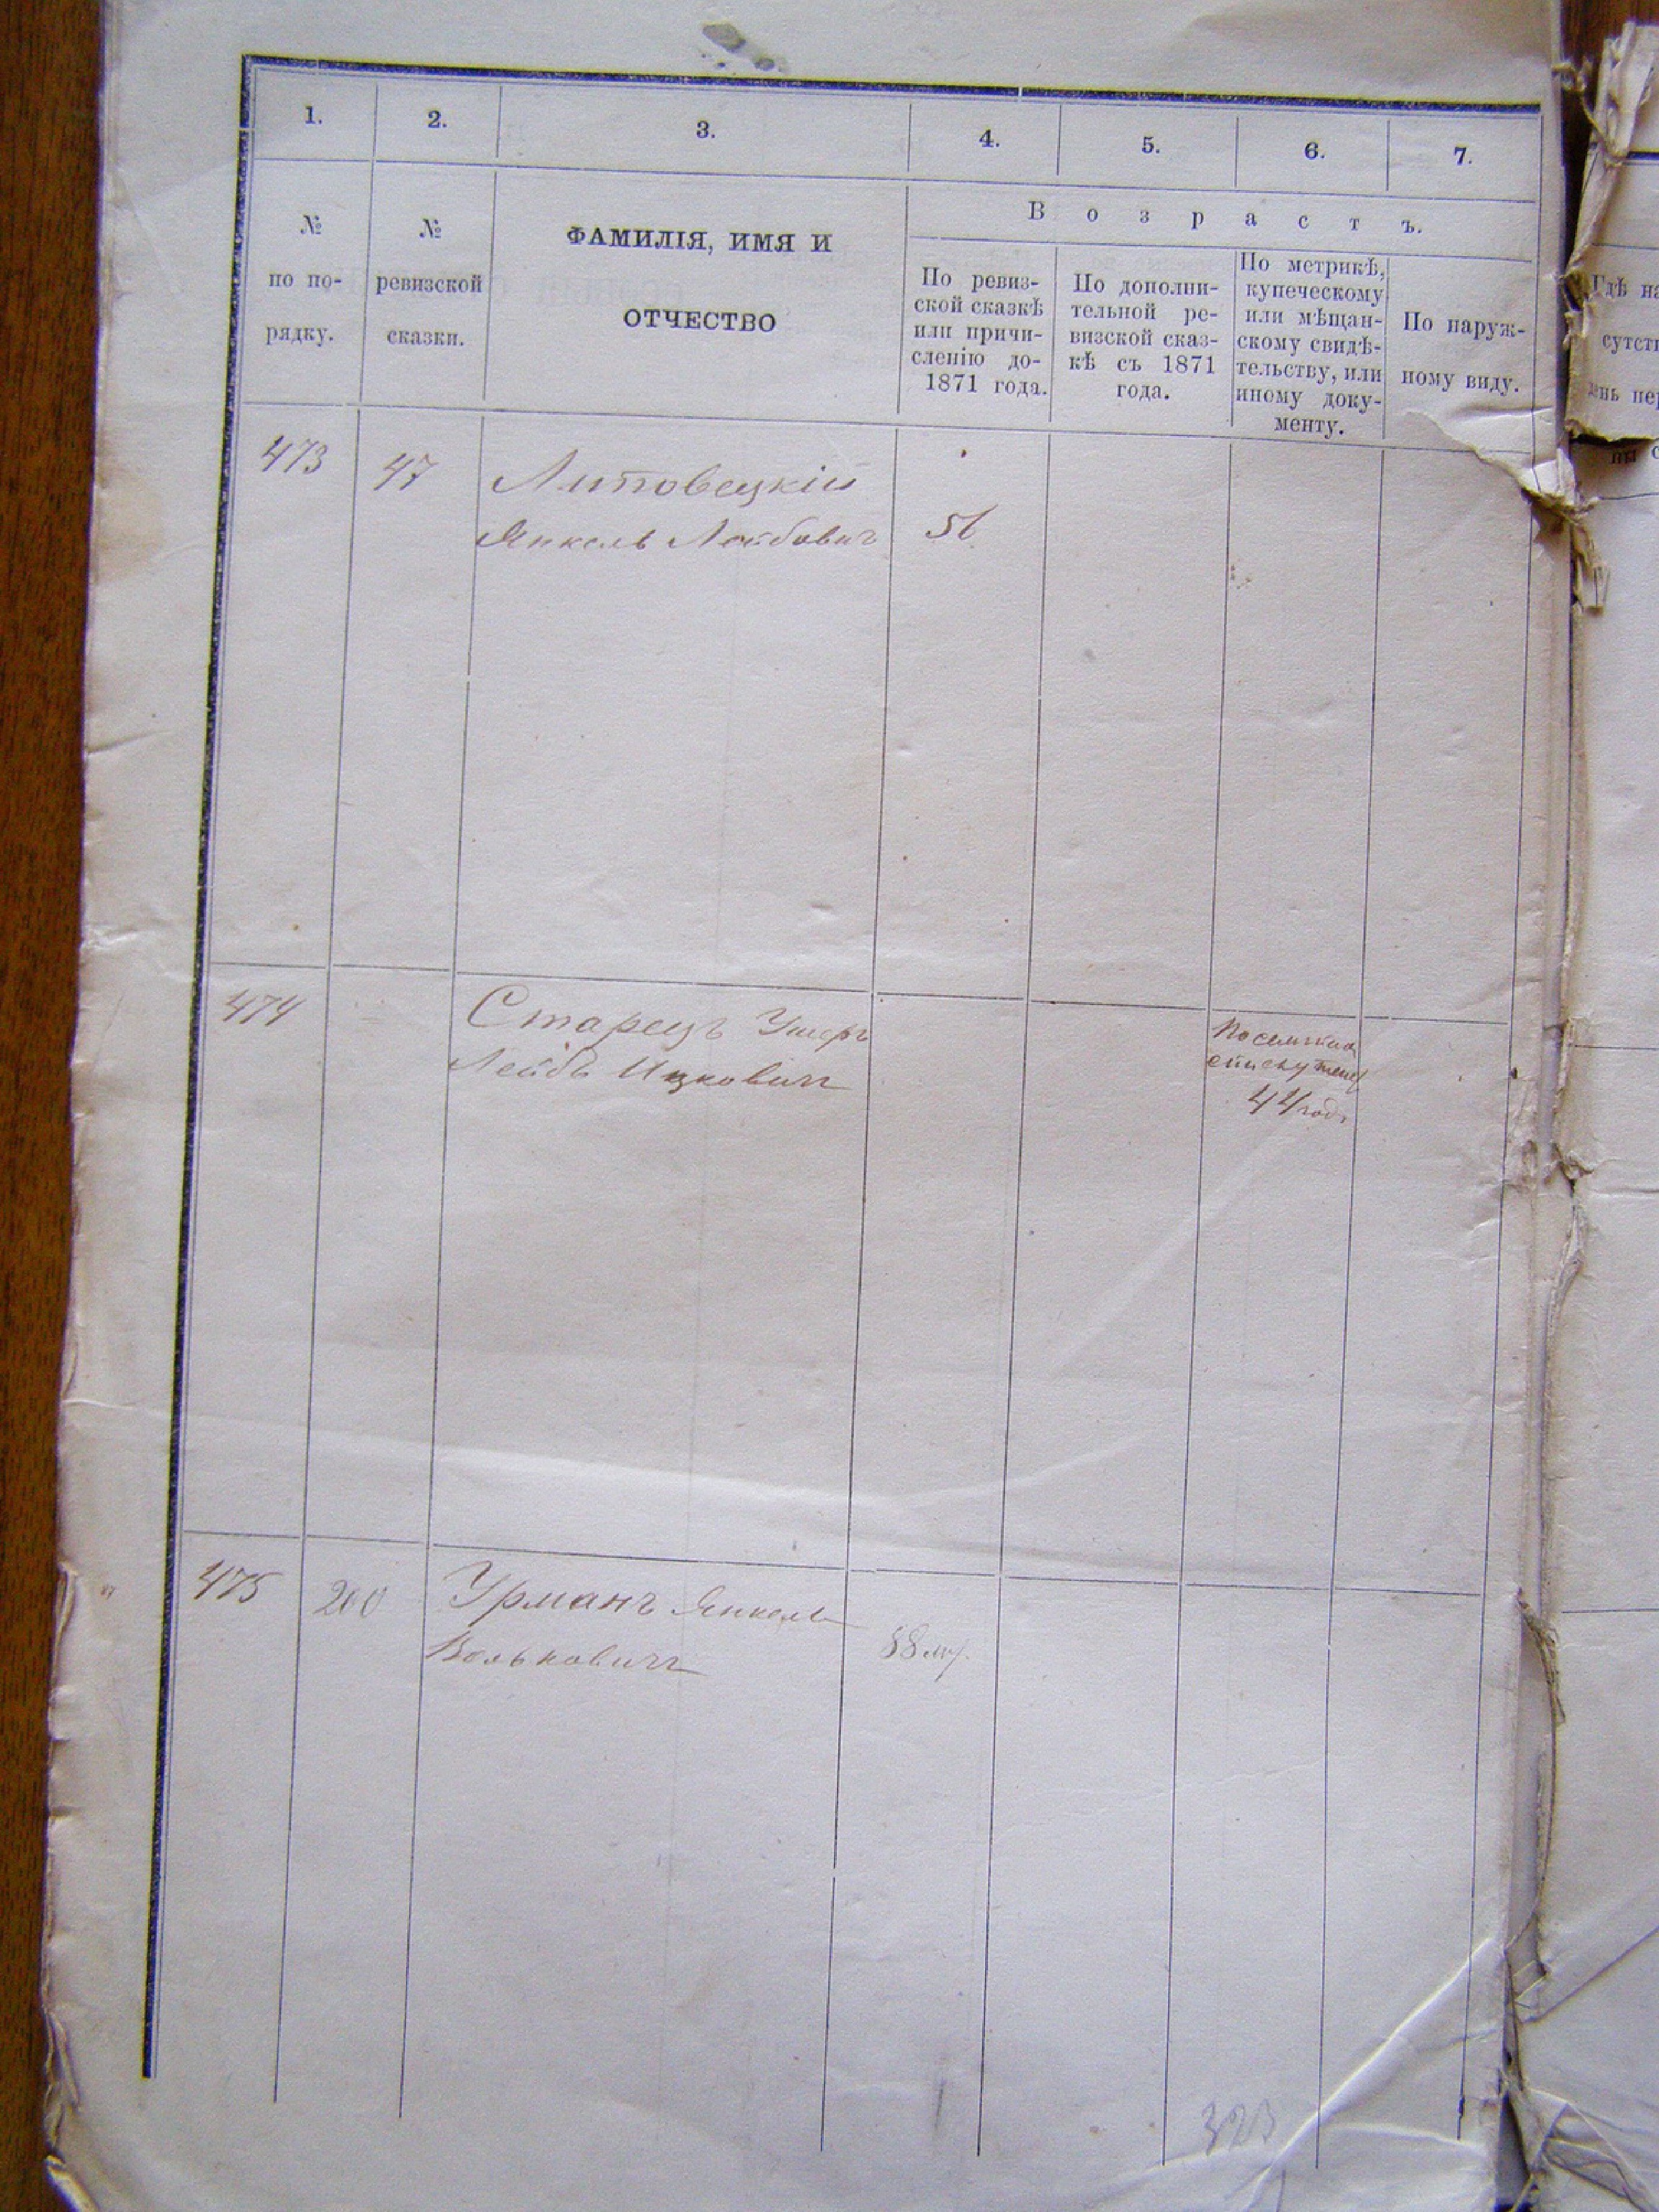 1. 2. 3. 4. 5. 6. 7.
№
по по-
рядку.
№
ревизской
сказки.
ФАМИЛІЯ, ИМЯ И
ОТЧЕСТВО
Возрастъ.
По ревиз-
ской сказкѣ
или причи-
сленію до-
1871 года.
По дополни-
тельной ре-
визской сказ-
кѣ съ 1871
года.
По метрикѣ,
купеческому
или мѣщан-
скому свидѣ-
тельству, или
иному доку-
менту.
По наруж-
ному виду.
473 47 Липовецкій
Янкель Лейбович
474 Старецъ Ушеръ
Лейбъ Ицковичъ
44
475 200 Урманъ Янкель
Вольковичъ
Гдѣ на
сутст
323